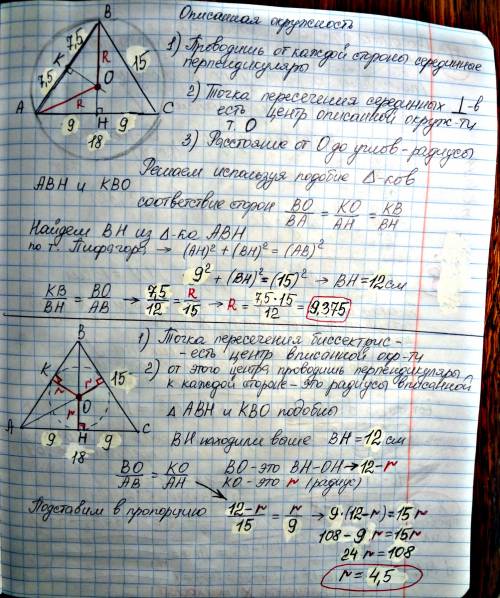 Описанная окружность
1) Проводишь от каждой стороны серединные
перпендикуляры
2) Точка пересечения серединных ⊥-в
есть центр описанной окруж-ти
т. О
3) Расстояние от О до углов - радиусы
B
7,5
7,5
K
15
R
O
R
A
H
C
9
9
18
Решаем используя подобие Δ-ков
ABH и KBO
соответствие сторон BO/BA = KO/AH = KB/BH
Найдем BH из Δ-ка ABH
по т. Пифагора → (AH)² + (BH)² = (AB)²
9² + (BH)² = (15)² → BH = 12 см
KB/BH = BO/AB → 7,5/12 = R/15 → R = 7,5·15/12 = 9.375
B
K
15
r
r
O
r
A
H
C
9
9
18
1) Точка пересечения биссектрис -
- есть центр вписанной окр-ти
2) от этого центра проводишь перпендикуляры
к каждой стороне - это радиусы вписанной
Δ ABH и KBO подобны
BH находили выше BH = 12 см
BO/AB = KO/AH
BO - это BH-OH → 12-r
KO - это r (радиус)
Подставим в пропорцию 12-r/15 = r/9 → 9·(12-r) = 15r
108 - 9r = 15r
24r = 108
r = 4,5